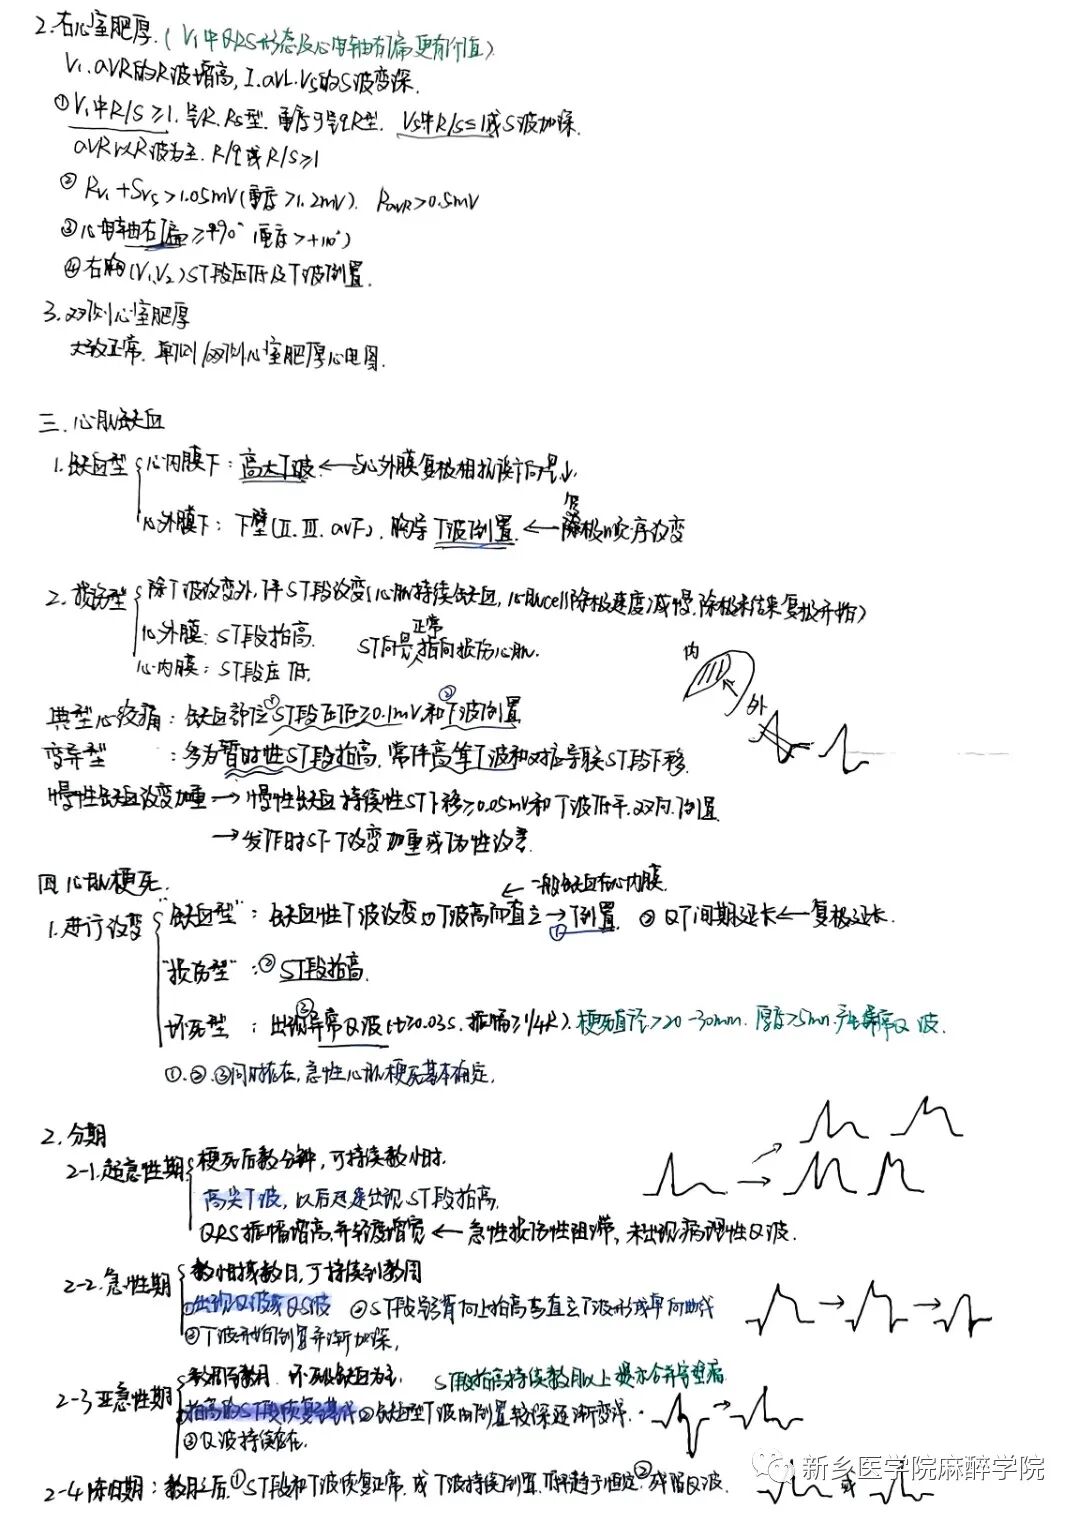 2.右心室肥厚.(V₁中QRS形态及心电轴右偏更有价值)
V₁.aVR的R波增高, I.aVL.V₅的S波变深.
①V₁中R/S≥1.呈R.Rs型.重度可呈qR型. V₅中R/S≤1或S波加深.
aVR以R波为主. R/q或R/S≥1
②Rv₁+Sv₅>1.05mV(重度>1.2mV). RaVR>0.5mV
③心电轴右偏≥+90°(重度>+110°)
④右胸(V₁,V₂)ST段压低及T波倒置.
3.双侧心室肥厚
大致正常.单侧/双侧心室肥厚心电图.
三.心肌缺血
1.缺血型 心内膜下:高大T波←与心外膜复极相抗衡向量↓.
复
心外膜下: 下壁(II.III.aVF).胸导T波倒置.←极顺序改变
2.损伤型 除T波改变外,伴ST段改变(心肌持续缺血,心肌cell除极速度减慢.除极未结束复极开始)
心外膜: ST段抬高. ST向量 正常 指向损伤心肌.
心内膜: ST段压低.
内
外
典型心绞痛:缺血部位①ST段压低≥0.1mV.和②T波倒置
变异型:多为暂时性ST段抬高,常伴高耸T波和对应导联ST段下移.
慢性缺血改变加重→慢性缺血持续性ST下移≥0.05mV和T波低平.双向.倒置
→发作时ST-T改变加重或伪性改善.
四 心肌梗死.
←一般缺血在心内膜.
1.进行改变 "缺血型":缺血性T波改变 T波高而直立→①T倒置. ②QT间期延长←复极延长.
"损伤型":②ST段抬高.
坏死型:出现③异常Q波(t≥0.03s.振幅≥1/4R).梗死直径>20-30mm.厚度>5mm.产生异常Q波.
①.②.③同时存在,急性心肌梗死基本确定.
2.分期
2-1.超急性期 梗死后数分钟,可持续数小时.
高尖T波,以后迅速出现ST段抬高.
QRS振幅增高,并轻度增宽←急性损伤性阻滞,未出现病理性Q波.
2-2.急性期 数小时或数日,可持续到数周
①出现Q波或QS波 ②ST段呈弓背向上抬高与直立T波形成单向曲线
③T波开始倒置并渐加深.
2-3亚急性期 数周至数月.坏死及缺血为主. ST段抬高持续数月以上提示合并室壁瘤
①抬高的ST段恢复基线②缺血型T波由倒置较深逐渐变浅.
③Q波持续存在.
2-4陈旧期:数月之后.①ST段和T波恢复正常.或T波持续倒置.低平趋于恒定.②残留Q波. 或
新乡医学院麻醉学院